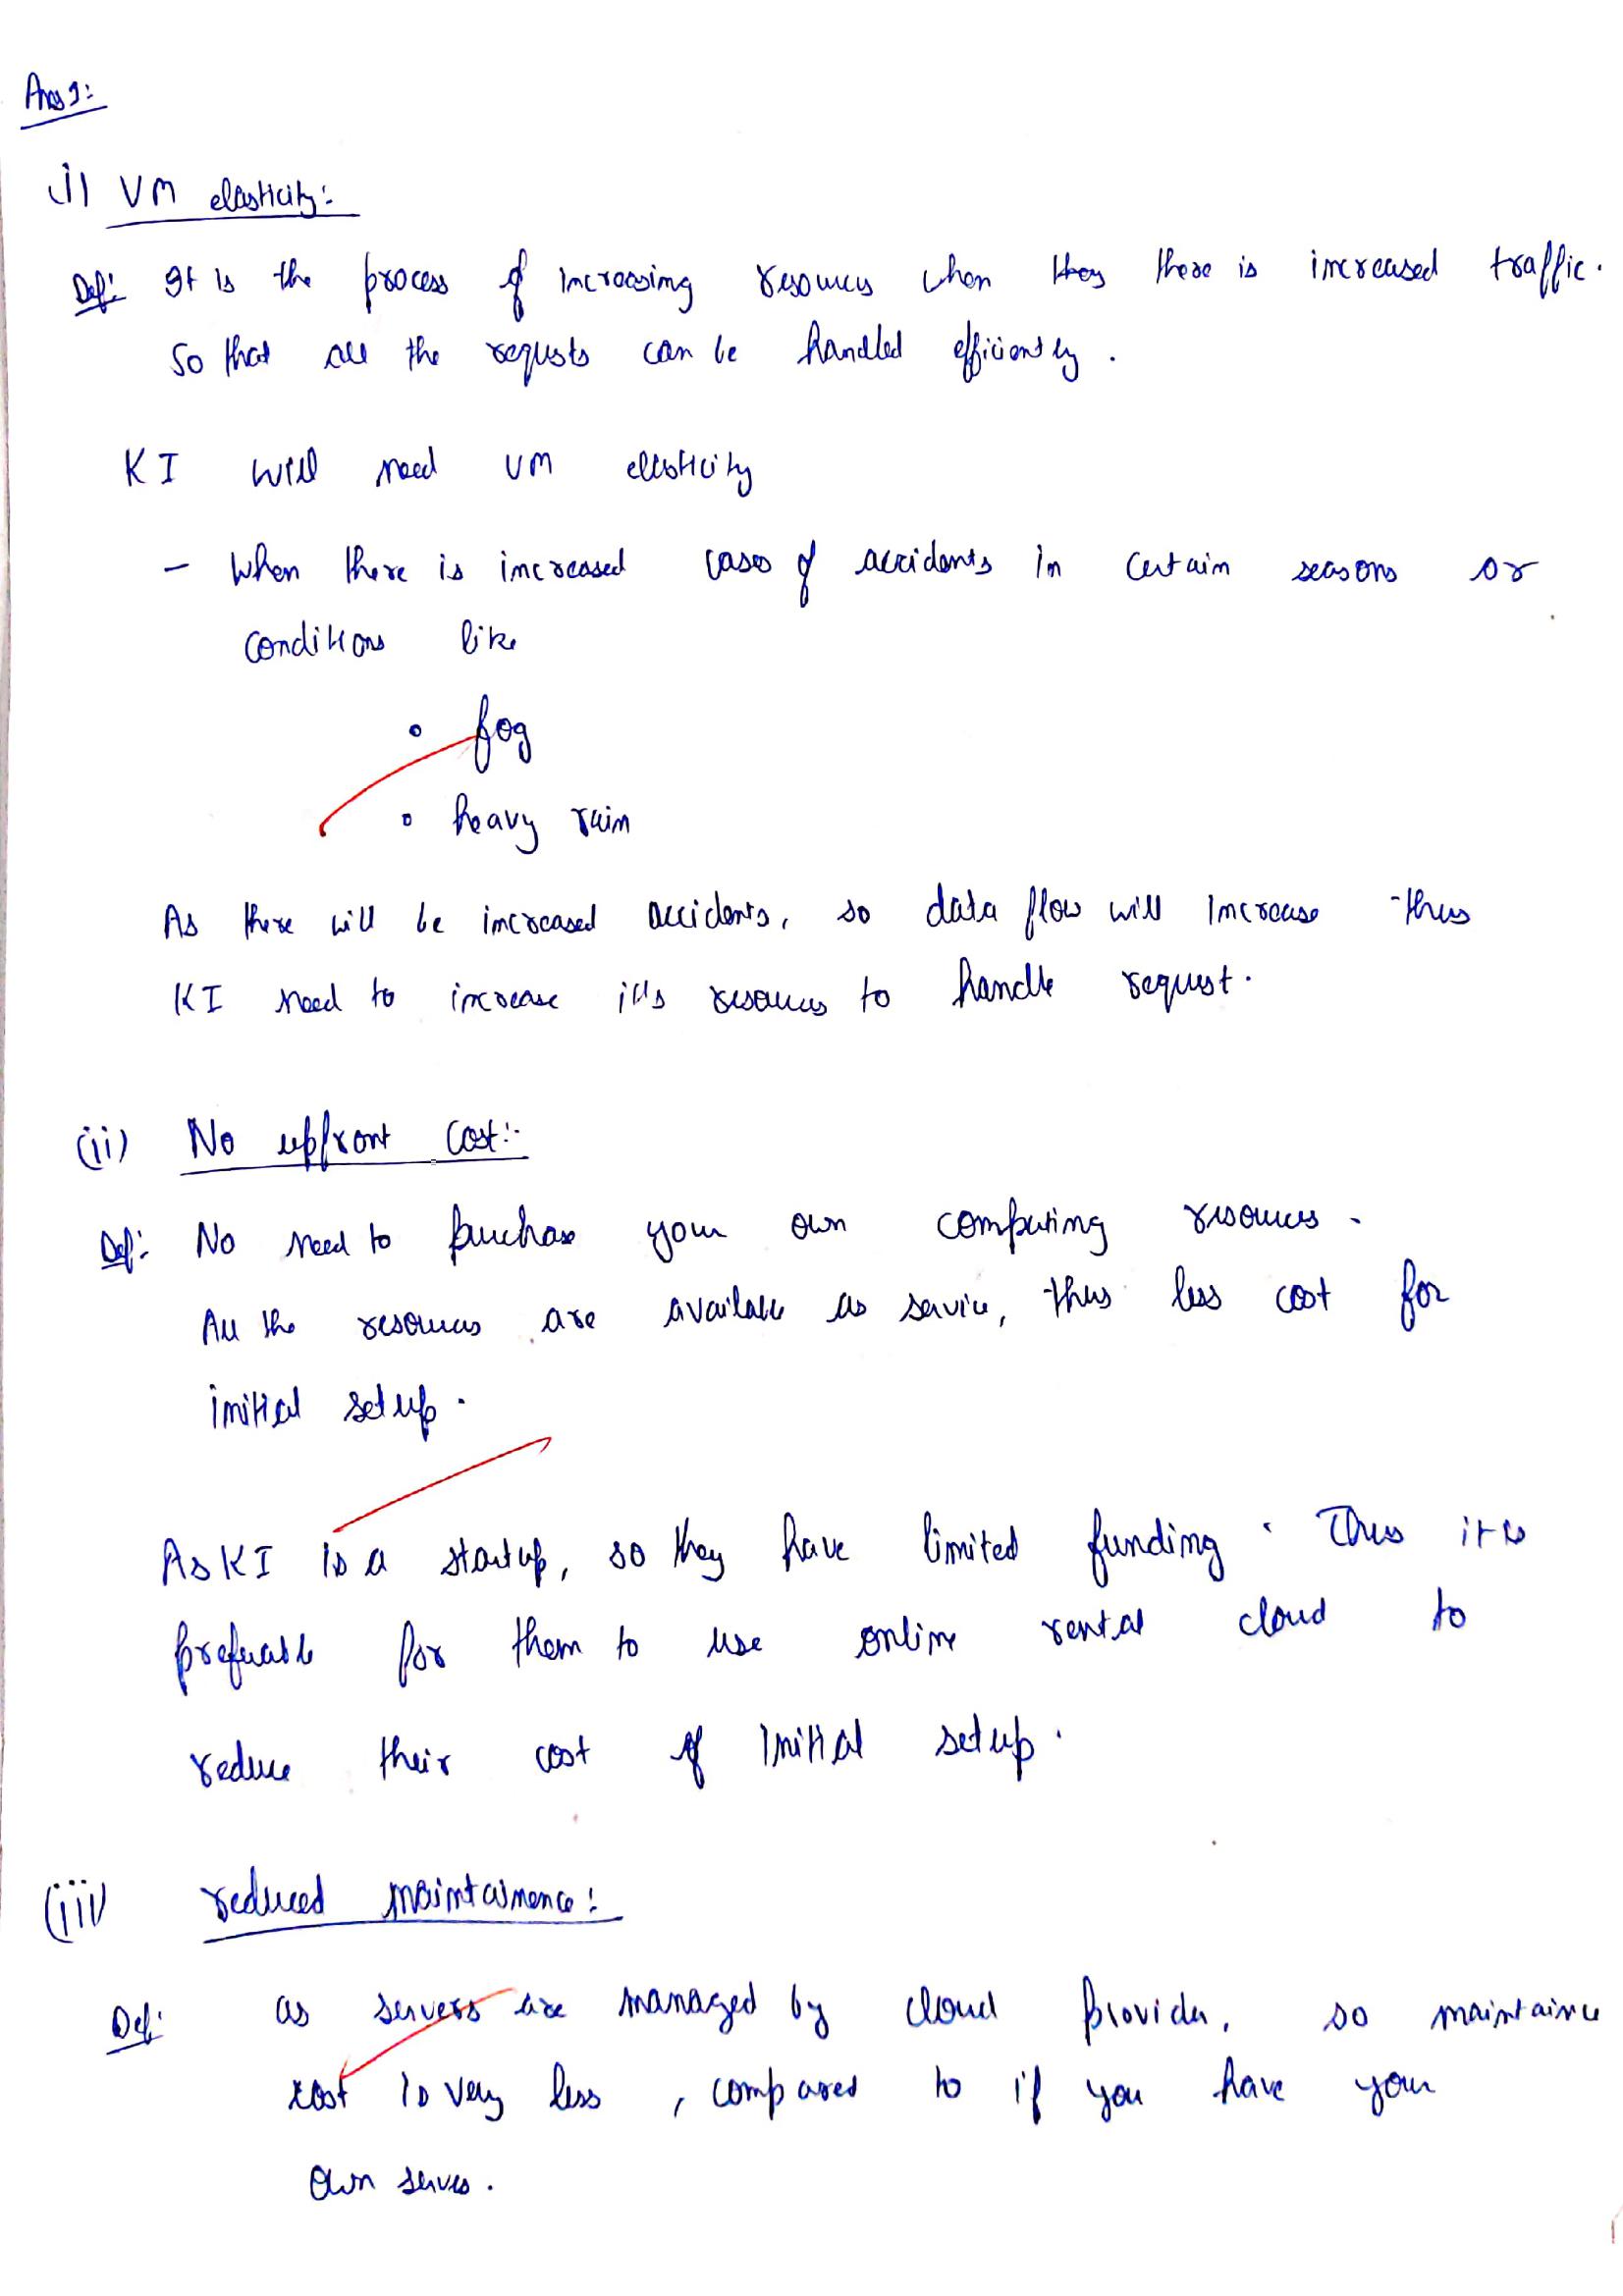 Ans 1:
(i) VM elasticity:
Def: It is the process of increasing resources when they there is increased traffic.
So that all the requsts can be handled efficiently.
KI will need VM elasticity
- When there is increased cases of accidents in certain seasons or
conditions like
• fog
• heavy rain
As there will be increased accidents, so data flow will increase thus
KI need to increase it's resources to handle request.
(ii) No upfront cost:-
Def: No need to purchase your own computing resources.
All the resources are available as service, thus less cost for
initial setup.
As KI is a startup, so they have limited funding. Thus it is
preferable for them to use online rental cloud to
reduce their cost of initial setup.
(iii) reduced maintainence:
Def: as servers are managed by cloud provider, so maintaince
cost is very less, compared to if you have your
own serves.